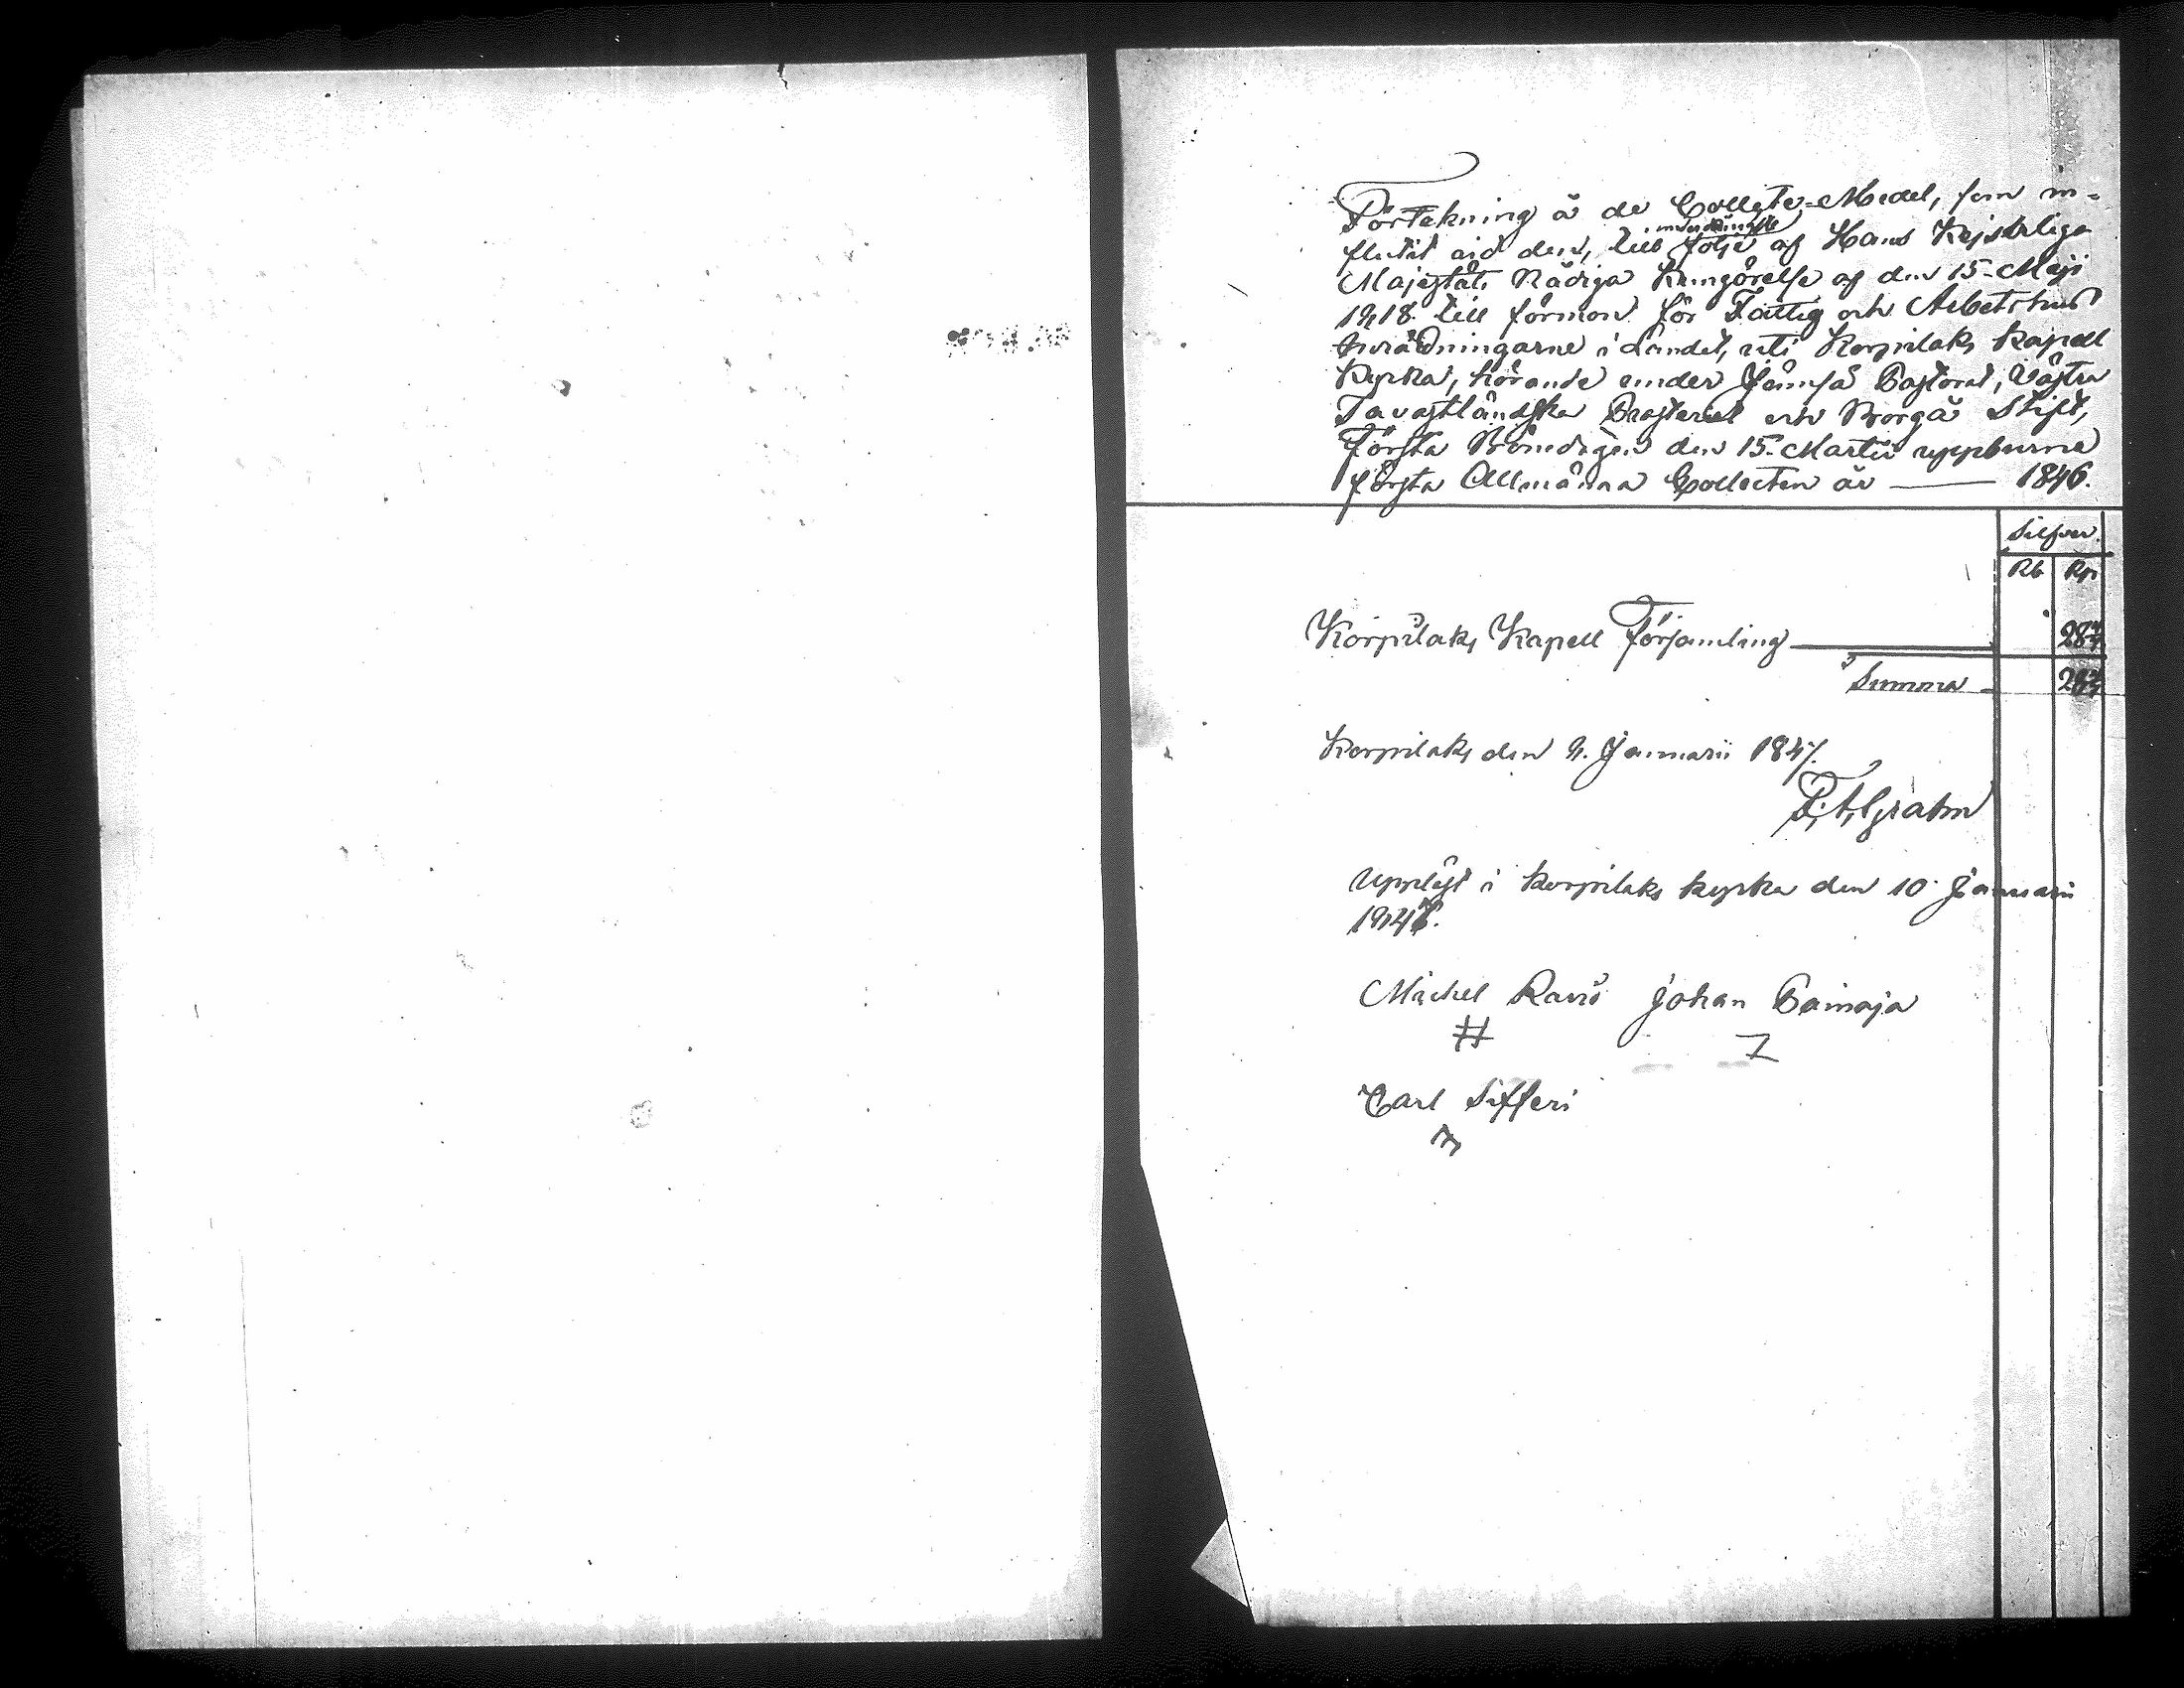 Förtekning å de Collecte-Medel, som in-
flutit vid den, till följe af Hans Kejserliga
Majestäts Nådiga Kungörelse af den 15 Maji
1818 till förmon för Fattig och Arbetshus
Inrädningarne i Landet, uti Korpilaks Kapell
Kyrka, hörande under Jämsä Pastorat, Västra
Tavastländska Prosteriet och Borgå Stift,
Första Bönedagen den 15 Martii uppburne
första Allmänna Collecten år — 1846.
Silfver.
Rb Kp
Korpilaks Kapell Församling 28 4/7
Summa 28 4/7
Korpilaks den 4. Januarii 1847.
F. A. Grahn
Upplyst i Korpilaks kyrka den 10 Januarii
1847.
Michel Ravi Johan Painaja
Carl Sifferi